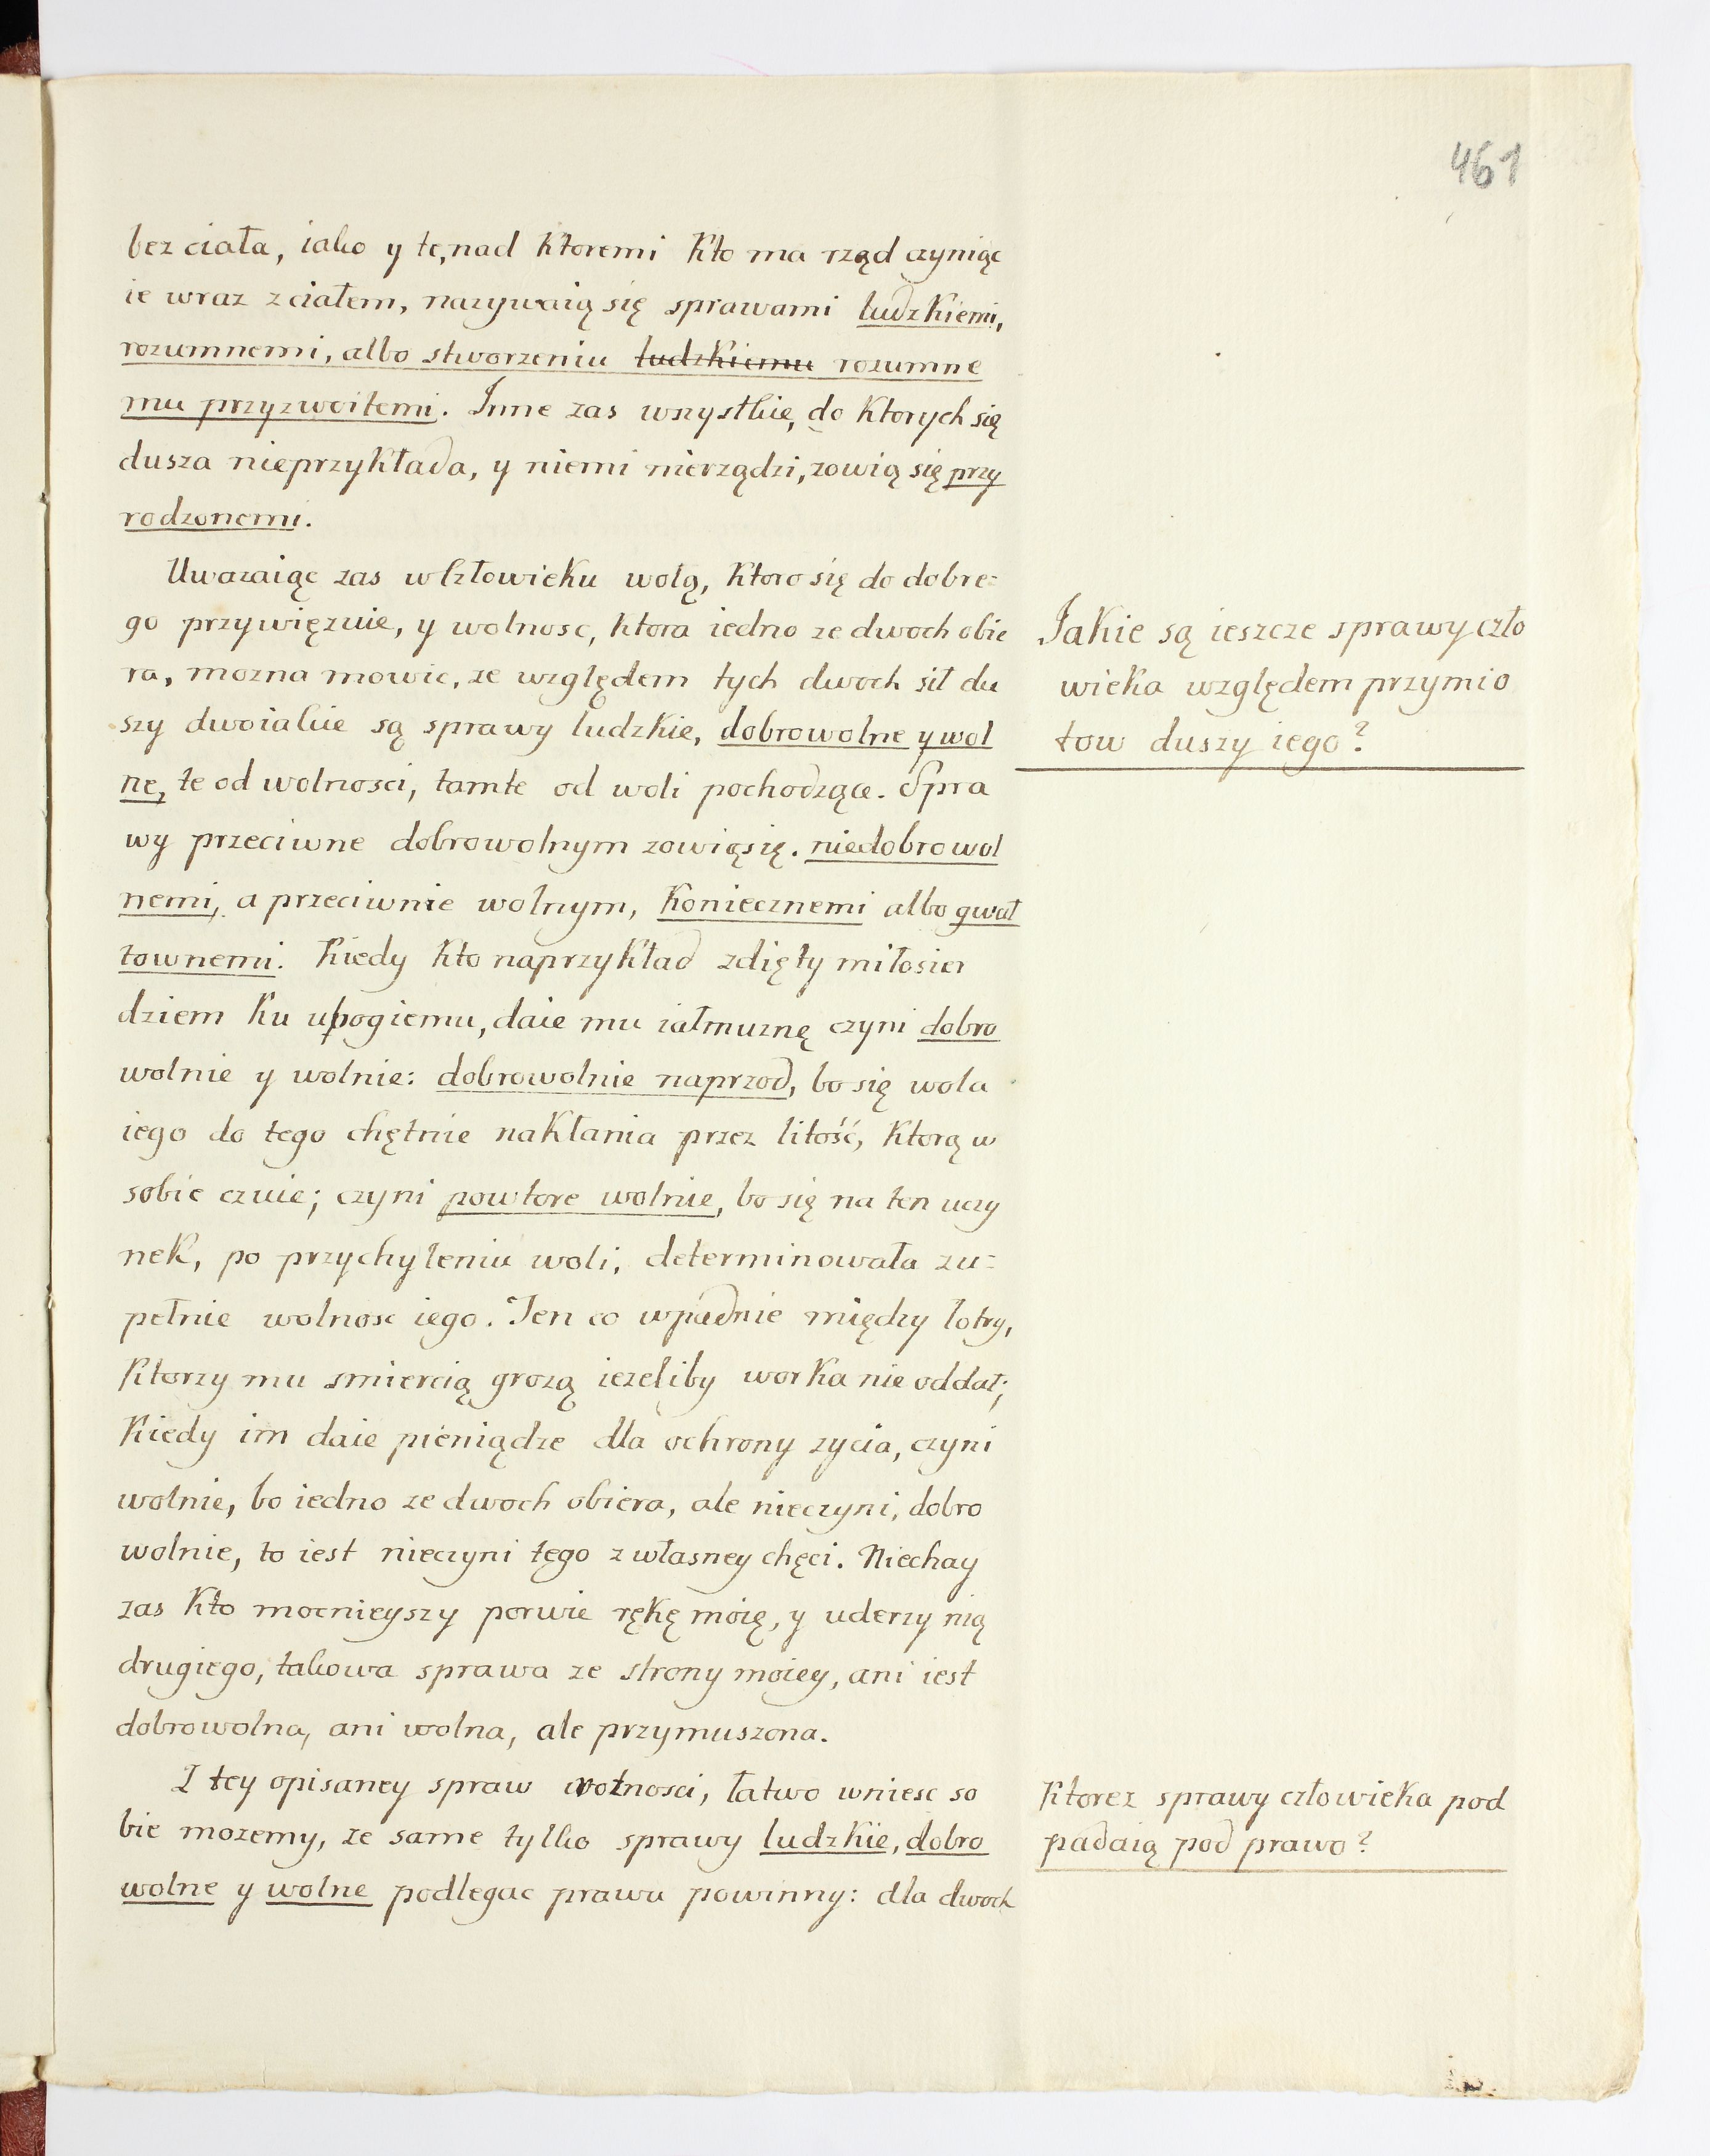 461
bez ciała, iako y te, nad ktoremi kto ma rząd czyniąc
ie wraz z ciałem, nazywaią się sprawami ludzkiemi,
rozumnemi, albo stworzeniu ludzkiemu rozumne
mu przyzwoitemi. Inne zas wszystkie, do ktorych się
dusza nieprzykłada, y niemi nierządzi, zowią się przy
rodzonemi.
Uwazaiąc zas w Człowieku wolą, ktora się do dobre=
go przywięzuie, y wolnosc, ktora iedno ze dwoch obie
ra, mozna mowic, ze względem tych dwoch sił du
szy dwoiakie są sprawy ludzkie, dobrowolne y wol
ne, te od wolnosci, tamte od woli pochodzące. Spra
wy przeciwne dobrowolnym zowią się. niedobrowol
nemi, a przeciwnie wolnym, koniecznemi albo gwał
townemi. Kiedy kto naprzykład zdięty miłosier
dziem ku upogiemu, daie mu iałmuznę czyni dobro
wolnie y wolnie: dobrowolnie naprzod, bo się wola
iego do tego chętnie nakłania przez litość, ktorą w
sobie czuie; czyni powtore wolnie, bo się na ten uczy
nek, po przychyleniu woli, determinowała zu=
pełnie wolnosc iego. Ten co wpadnie między łotry,
ktorzy mu smiercią grozą iezeliby worka nie oddał;
kiedy im daie pieniądze dla ochrony zycia, czyni
wolnie, bo iedno ze dwoch obiera, ale nieczyni, dobro
wolnie, to iest nieczyni tego z własney chęci. Niechay
zas kto mocnieyszy porwie rękę moię, y uderzy nią
drugiego, takowa sprawa ze strony moiey, ani iest
dobrowolna, ani wolna, ale przymuszona.
Z tey opisaney spraw rożnosci, łatwo wniesc so
bie mozemy, ze same tylko sprawy ludzkie, dobro
wolne y wolne podlegac prawu powinny: dla dwoch
Jakie są ieszcze sprawy czło
wieka względem przymio
tow duszy iego?
Ktorez sprawy człowieka pod
padaią pod prawo?